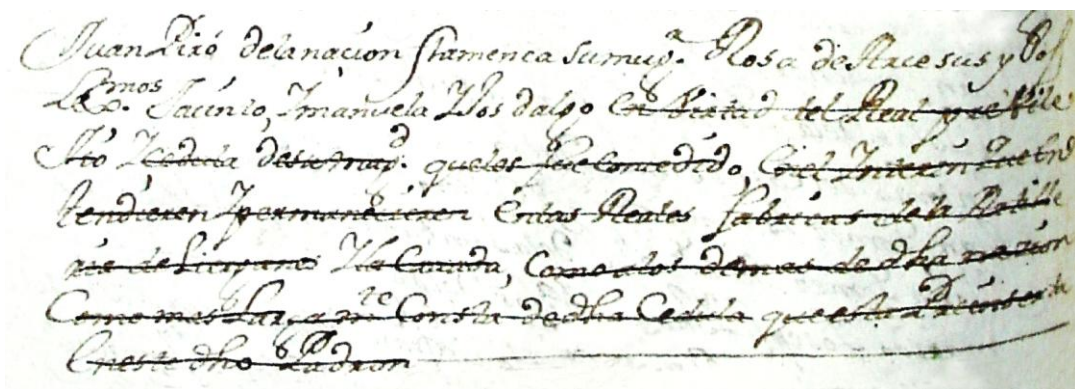 Juan Piró dela nacion flamenca sumugr. Rosa de Arce sus y
Lexmos. Jacinto, Ymanuela Hos dalgo En Virtad del Real previle
Cedula desu magd. queles fue Concedido, En el Interin que
tendieren Ypermanecieren Enlas Reales fabricas dela Artille
ria de Lierganes Yla Cavada, Como alos demas de dha nacion
Como mas Largamte Consta de dha Cedula que esta
Eneste dho Padron